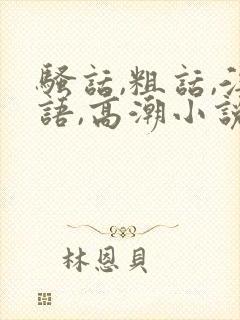 騷話,粗話,
語,高潮小說
林恩貝